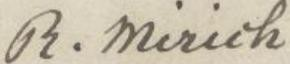 R. Mirich